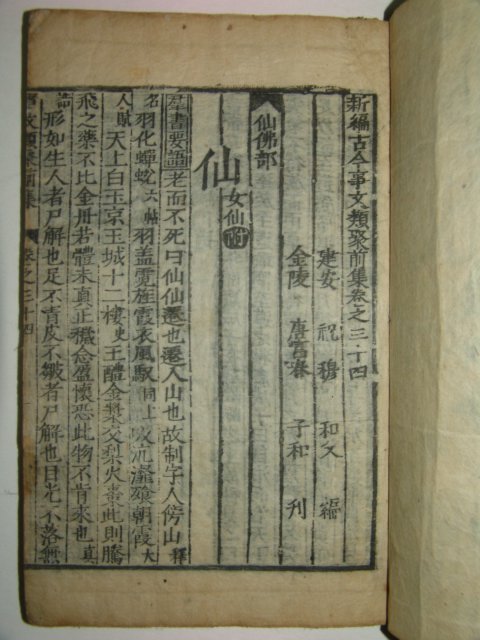 新編古今事文類聚前集卷之三十四
建安 祝穆 和父 編
金陵 唐富春 子和 刊
仙佛部
仙 女仙附
羣書要語 老而不死曰仙仙遷也遷入山也故制字人傍山 釋
名 羽化蟬蛻 六帖 羽蓋霓旌霞衣風馭 同上 吸沆瀣飧朝霞 大
人賦 天上白玉京玉城十二樓 史 玉醴金漿交梨火棗此則騰
飛之藥不比金丹若體未真正穢念盈懷恐此物不肯來也 真
誥 形如生人者尸解也足不青皮不皺者尸解也目光不落無
事文類聚前集 卷之三十四